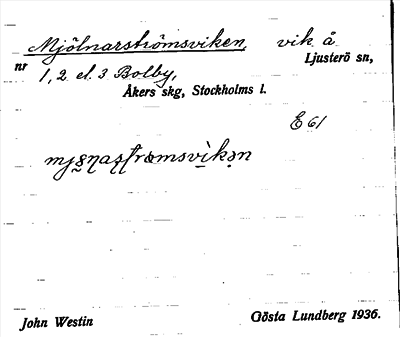 Mjölnarströmsviken, vik å
nr Ljusterö sn,
1, 2 el. 3 Bolby,
Åkers skg, Stockholms l.
E 61
John Westin Gösta Lundberg 1936.